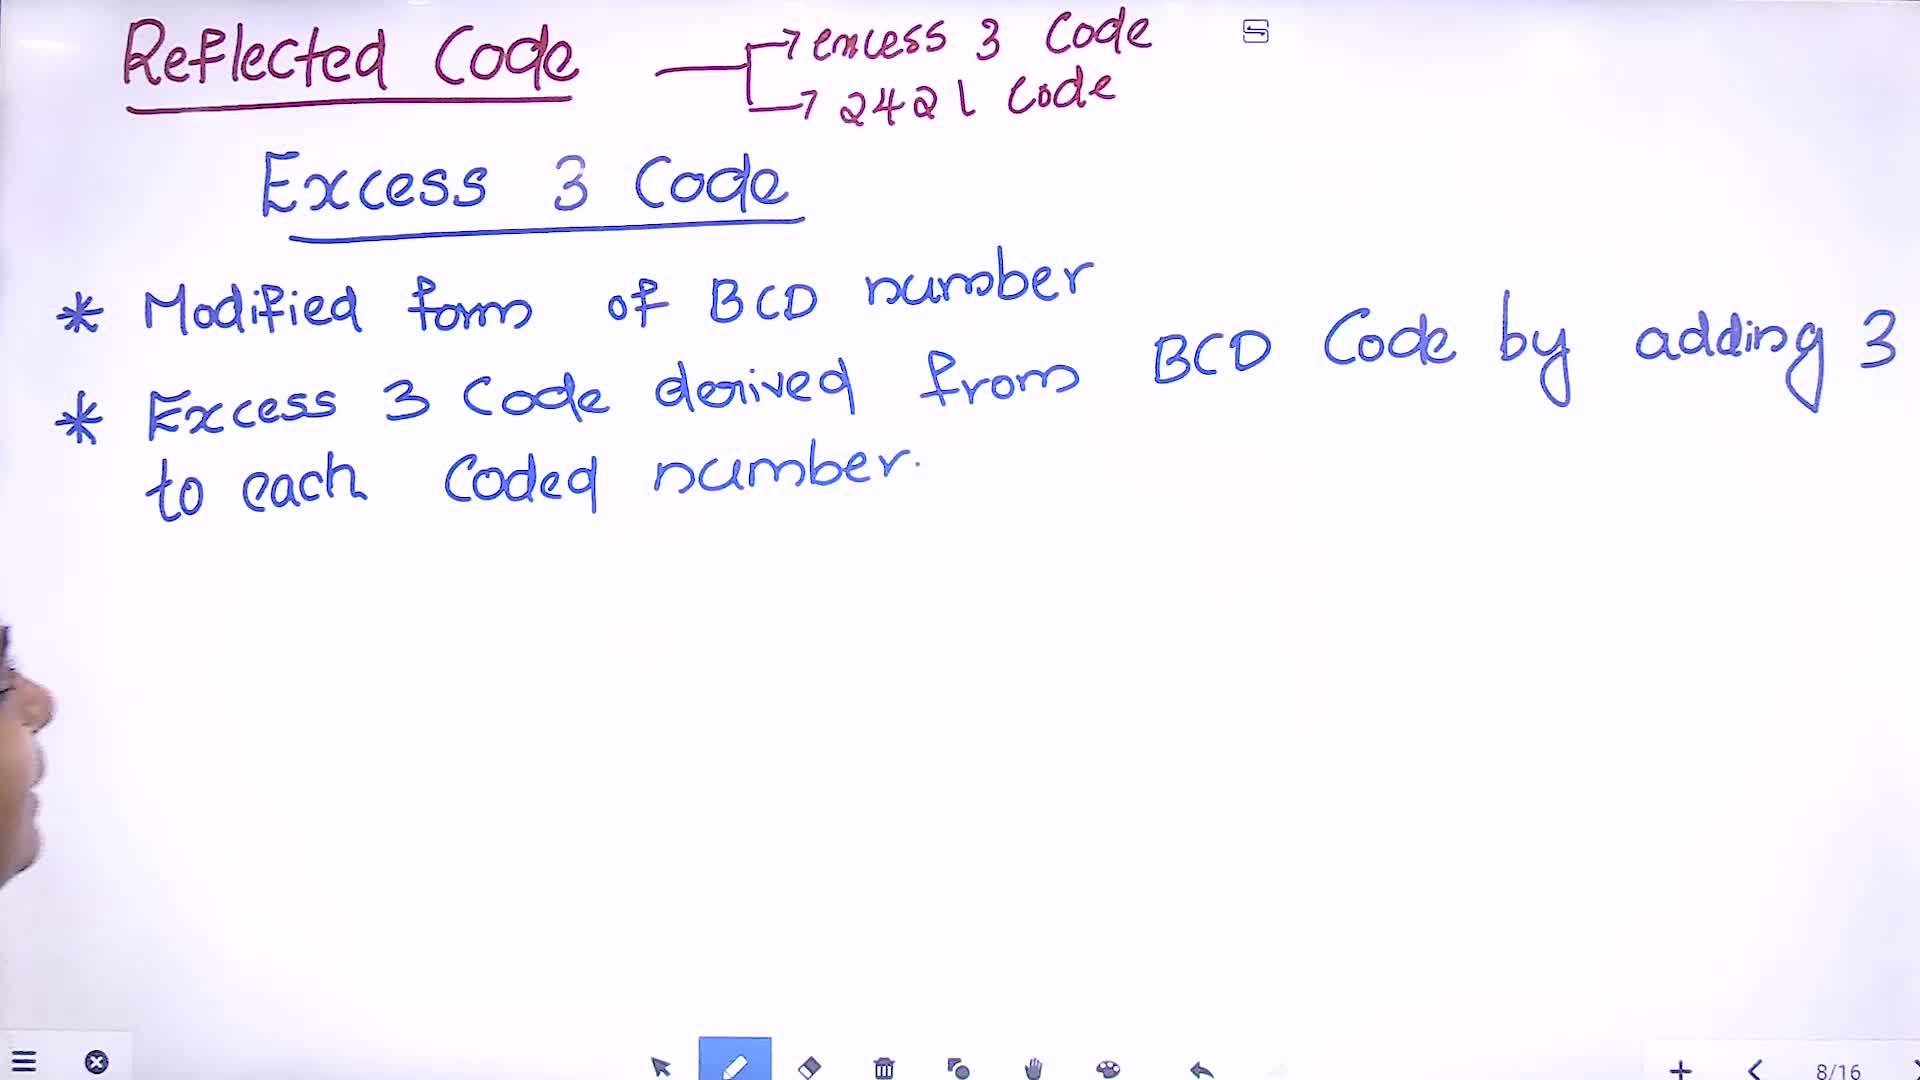 Reflected Code
excess 3 Code
2421 Code
Excess 3 Code
* Modified form of BCD number
* Excess 3 Code derived from BCD Code by adding 3
to each Coded number.
8/16